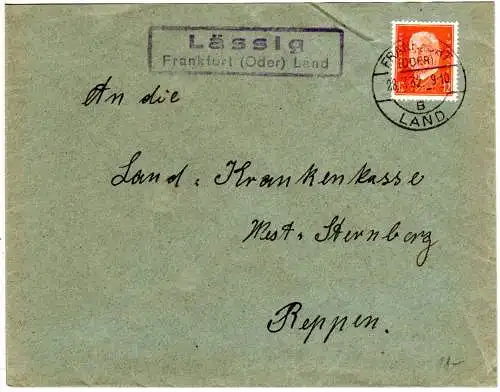 Lässig
Frankfurt (Oder) Land
FRANKFURT
(ODER)
32. 9-10
B
LAND
An die
Land-Krankenkasse
West-Sternberg
Reppen.